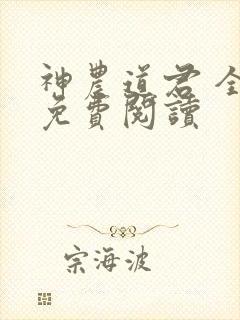 神農道君 全
免費閱讀
宗海波